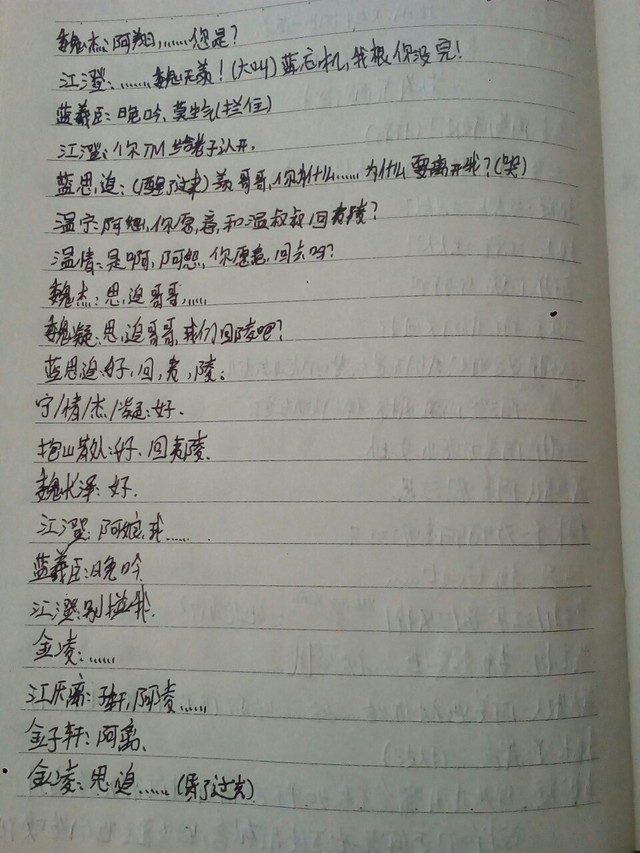 魏杰:阿翔,……您是?
江澄:……魏无羡!(大叫)蓝忘机,我跟你没完!
蓝羲臣:晚吟,莫生气(拦住)
江澄:你TM给老子让开。
蓝思追:(醒了过来)羡哥哥,你为什么……为什么要离开我?(哭)
温宁:阿愿,你愿意和温叔叔回夷陵?
温情:是啊,阿愿,你愿意回去吗?
魏杰:思追哥哥……
魏凝:思追哥哥,我们回陵吧?
蓝思追:好,回,夷,陵。
宁/情/杰/凝:好。
抱山散人:好,回夷陵。
魏长泽:好。
江澄:阿姐,我……
蓝羲臣:晚吟
江澄:别拦我。
金凌:……
江厌离:子轩,阿凌……
金子轩:阿离。
金凌:思追……(昏了过去)